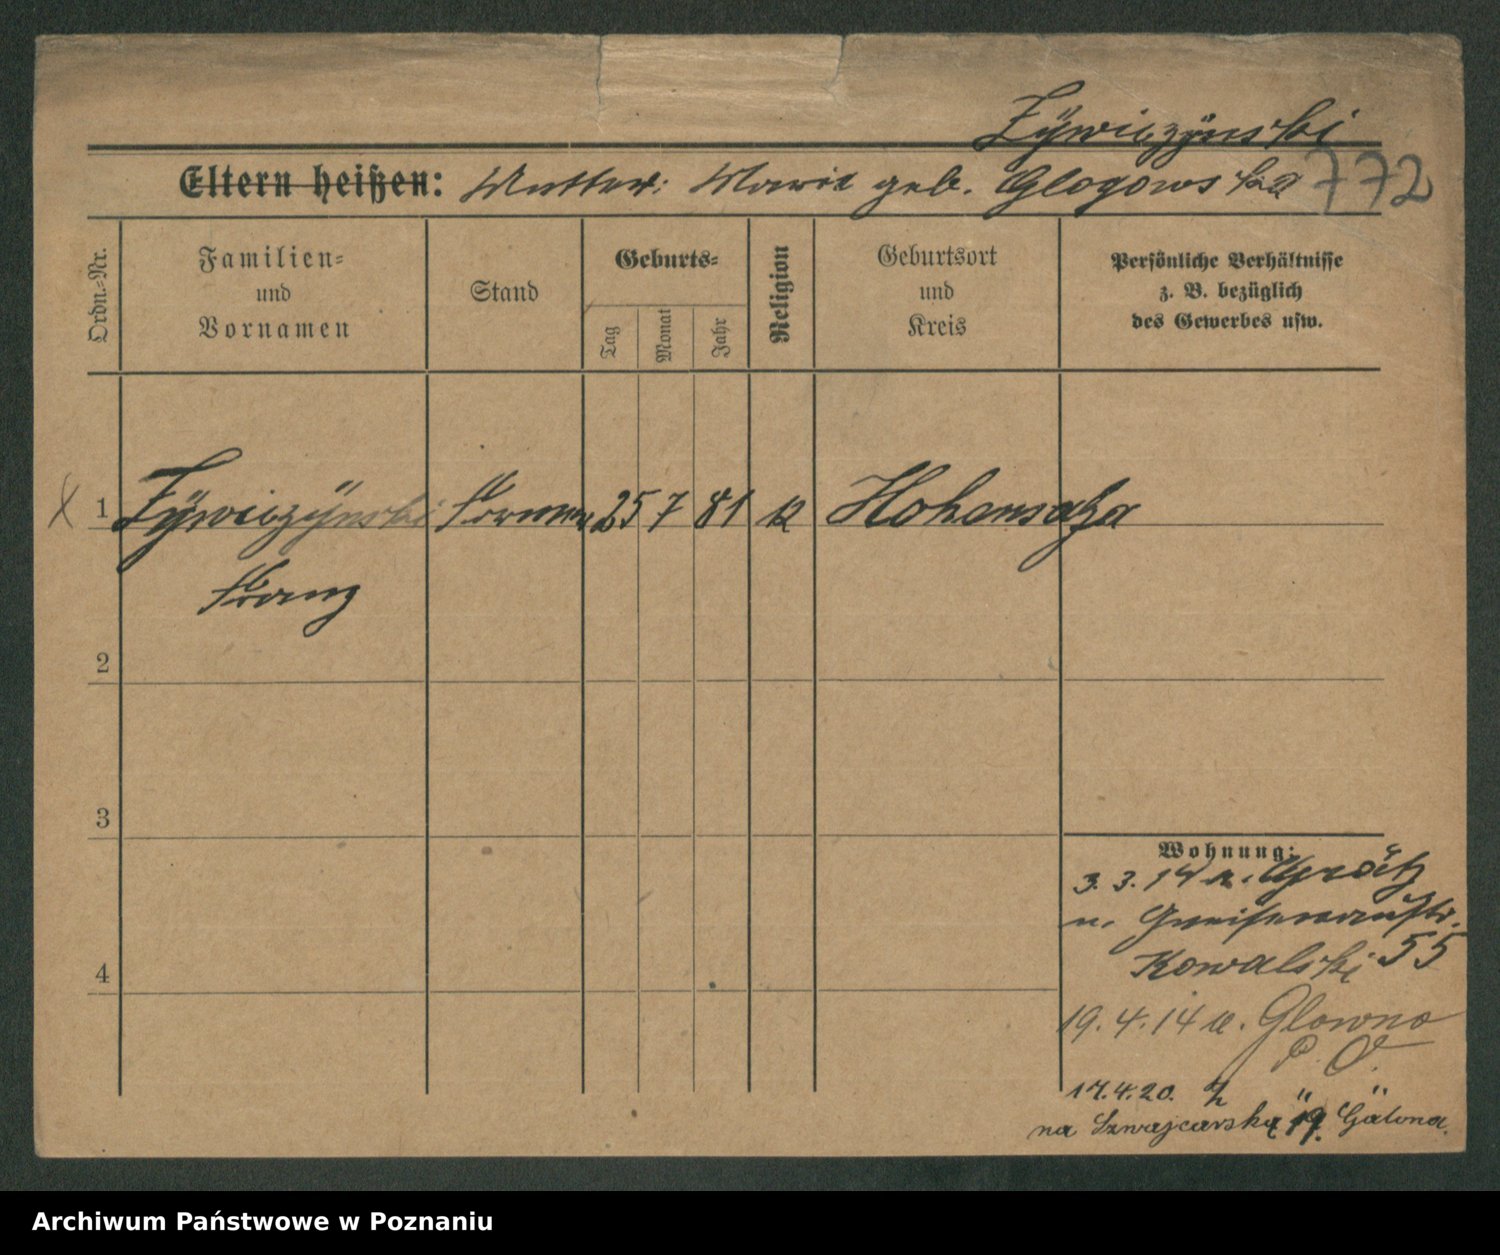 Zÿwiczÿnski
Eltern heißen: Mutter: Marie geb. Glogowska 772
Ordn.-Nr.
Familien-
und
Vornamen
Stand
Geburts-
Tag
Monat
Jahr
Religion
Geburtsort
und
Kreis
Persönliche Verhältnisse
z. B. bezüglich
des Gewerbes usw.
X 1 Zÿwiczÿnski 25 7 81 k Hohensalza
Franz
2
3
4
Wohnung:
3. 3. 14 n. Grätz
n. Gneisenaustr.
Kowalski 55
19. 4. 14 n. Glowno
P. O.
17.4.20.
na Szwajcarską 19.